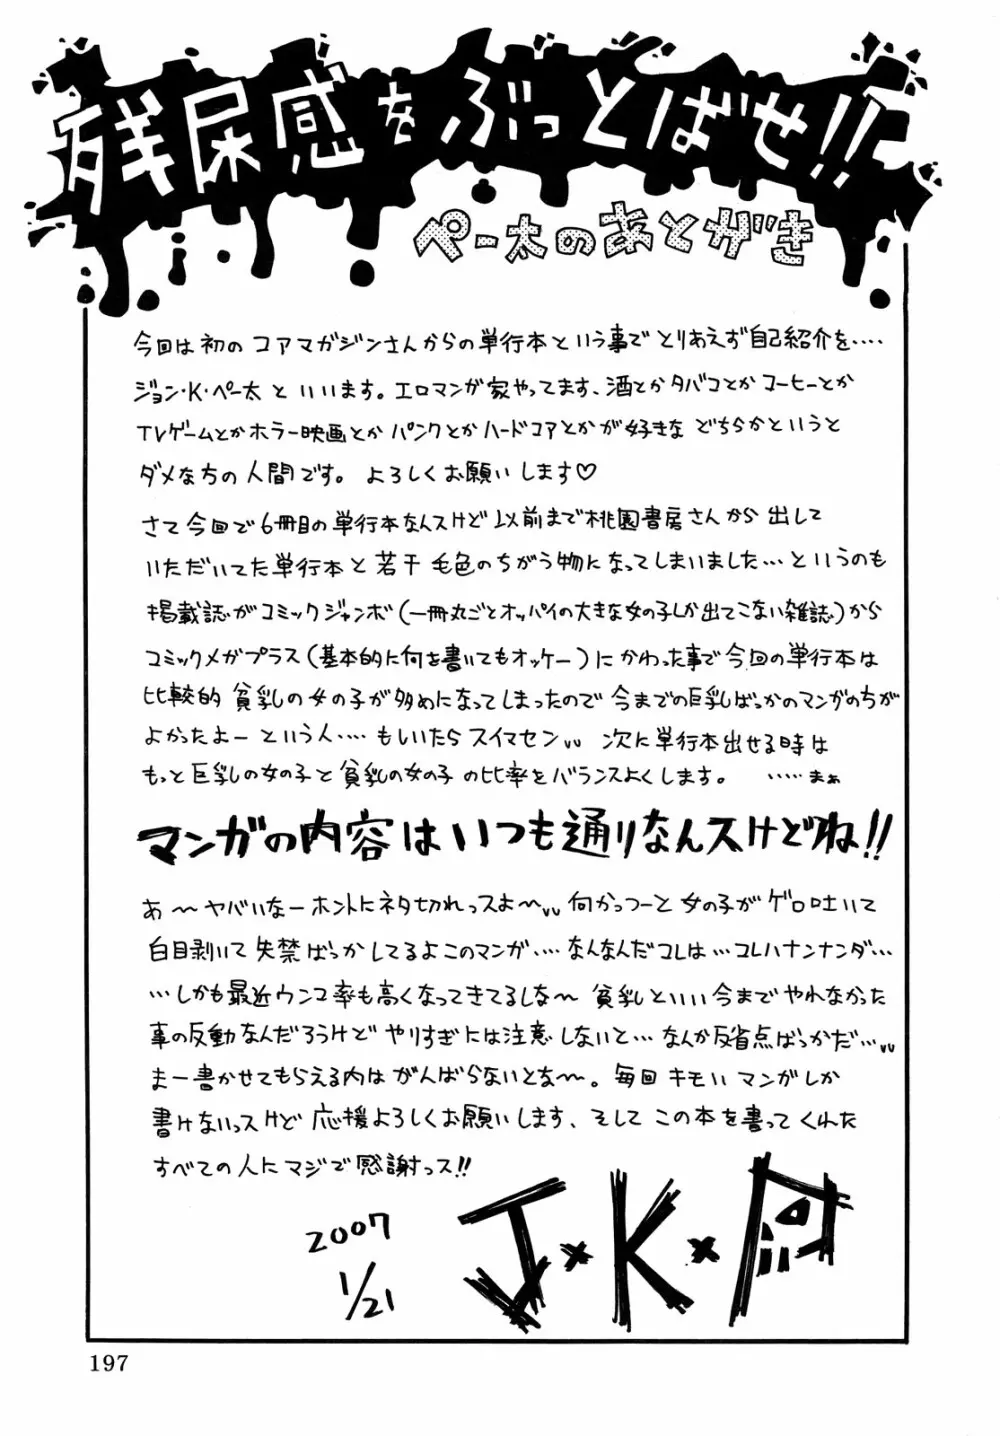 残尿感をぶっとばせ!!
ペー太のあとがき
今回は初のコアマガジンさんからの単行本という事でとりあえず自己紹介を‥‥
ジョン・K・ペー太といいます。エロマンガ家やってます、酒とかタバコとかコーヒーとか
TVゲームとかホラー映画とかパンクとかハードコアとかが好きなどちらかというと
ダメな方の人間です。よろしくお願いします♡
さて今回で6冊目の単行本なんスけど以前まで桃園書房さんから出して
いただいてた単行本と若干毛色のちがう物になってしまいました…というのも
掲載誌がコミックジャンボ(一冊丸ごとオッパイの大きな女の子しか出てこない雑誌)から
コミックメガプラス(基本的に何を書いてもオッケー)にかわった事で今回の単行本は
比較的貧乳の女の子が多めになってしまったので今までの巨乳ばっかのマンガのちが
よかったよーという人‥‥もしいたらスイマセン 次に単行本出せる時は
もっと巨乳の女の子と貧乳の女の子の比率をバランスよくします。 ‥‥‥まぁ
マンガの内容はいつも通りなんスけどね!!
あ〜ヤバいなーホントにネタ切れっスよ〜 何かっつーと女の子がゲロ吐いて
白目剥いて失禁ばっかしてるよこのマンガ‥‥なんなんだコレは…コレハナンナンダ…
…しかも最近ウンコ率も高くなってきてるしな〜貧乳といい今までやれなかった
事の反動なんだろうけどやりすぎには注意しないと…なんか反省点ばっかだ…
まー書かせてもらえる内はがんばらないとな〜。毎回キモいマンガしか
書けないっスけど応援よろしくお願いします、そしてこの本を買ってくれた
すべての人にマジで感謝っス!!
2007
1/21
J×K×P
197